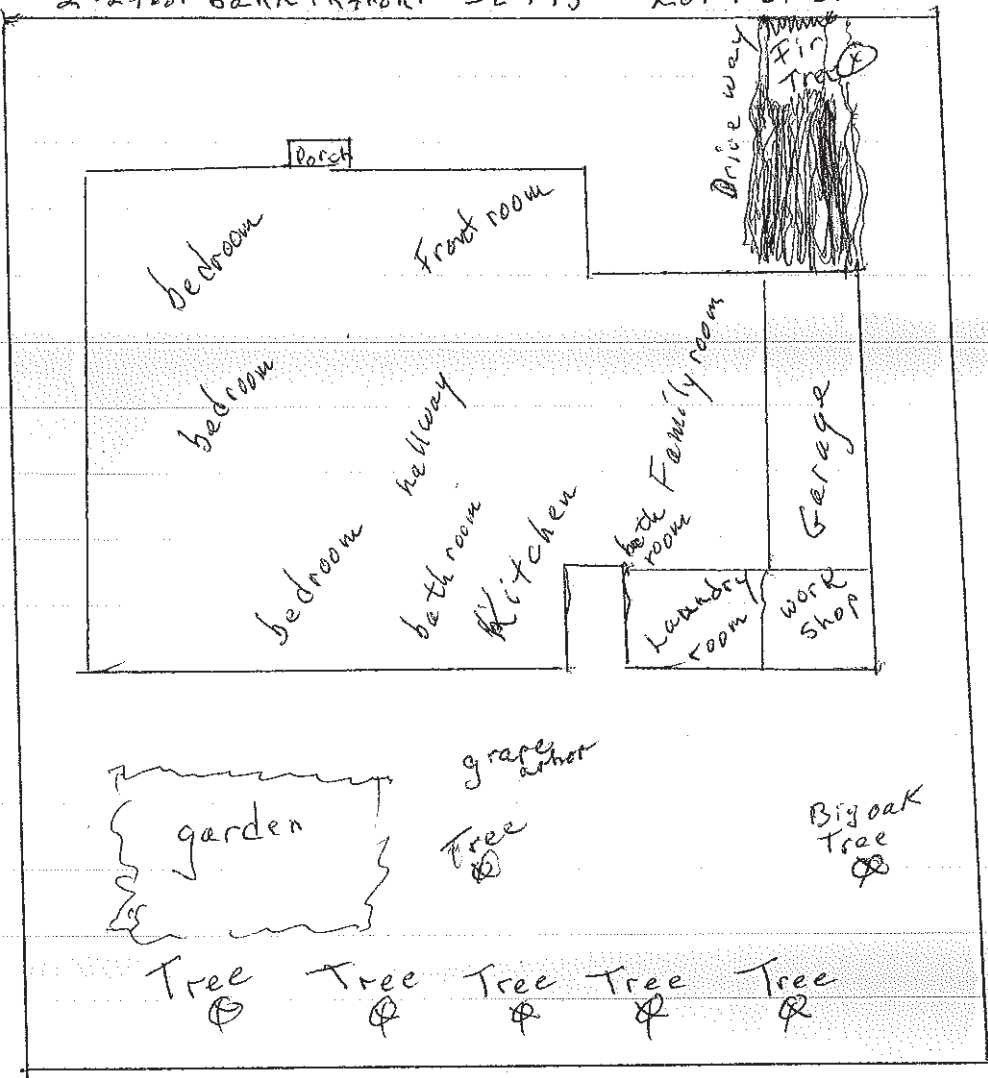 Fir
Tree
Drive way
Porch
bedroom
Front room
bedroom
hallway
Family room
Garage
bedroom
bath room
Kitchen
bath
room
Laundry
room
work
shop
grape
arbor
garden
Tree
Big oak
Tree
Tree
Tree
Tree
Tree
Tree